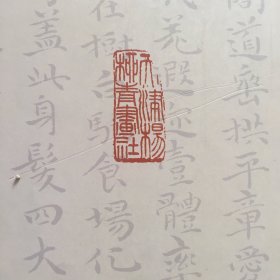 問道垂拱平章愛
羌遐邇壹體率
在樹白駒食場化
蓋此身髮四大
天津楊
柳青畫社